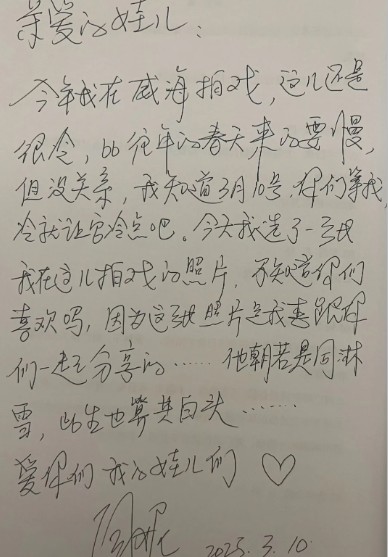 亲爱的娃儿:
今年我在威海拍戏,这儿还是
很冷,比往年的春天来的要慢,
但没关系,我知道3月10号,你们等我,
冷就让它冷点吧。今天我选了一张
我在这儿拍戏的照片,不知道你们
喜欢吗,因为这张照片是我喜跟你
们一起分享的……他朝若是同淋
雪,此生也算共白头……
爱你们 我的娃儿们 ♡
2023.3.10